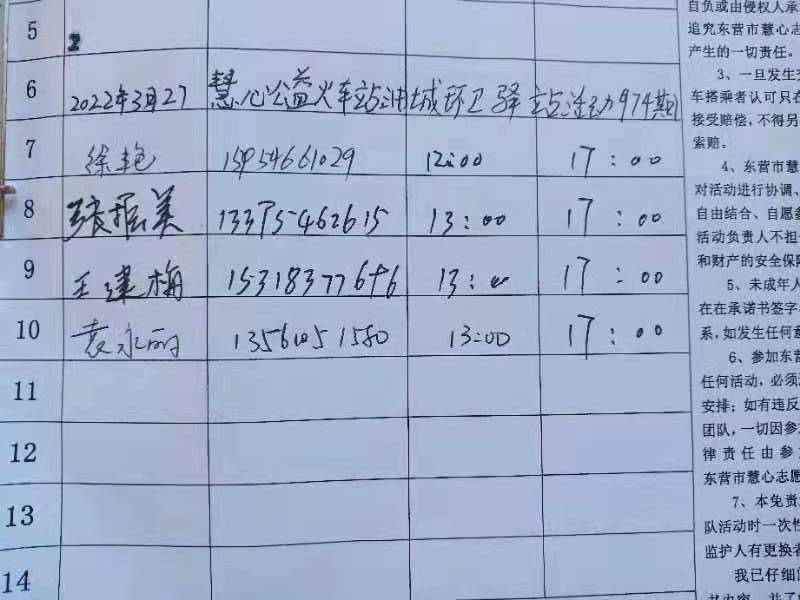 5
2
6 2022年3月27 慧心公益火车站油城环卫驿站活动974期
7 徐艳 15954661029 12:00 17:00
8 张振美 13375462615 13:00 17:00
9 王建梅 15318377646 13:00 17:00
10 袁永丽 13561051580 13:00 17:00
11
12
13
14
自负或由侵权人承
追究东营市慧心志
产生的一切责任。
3、一旦发生交
车搭乘者认可只在
接受赔偿，不得另
索赔。
4、东营市慧
对活动进行协调、
自由结合、自愿参
活动负责人不担
和财产的安全保障
5、未成年人
在在承诺书签字
系，如发生任何意
6、参加东营
任何活动，必须
安排；如有违反
团队，一切因参
律责任由参
东营市慧心志愿
7、本免责
队活动时一次性
监护人有更换者
我已仔细